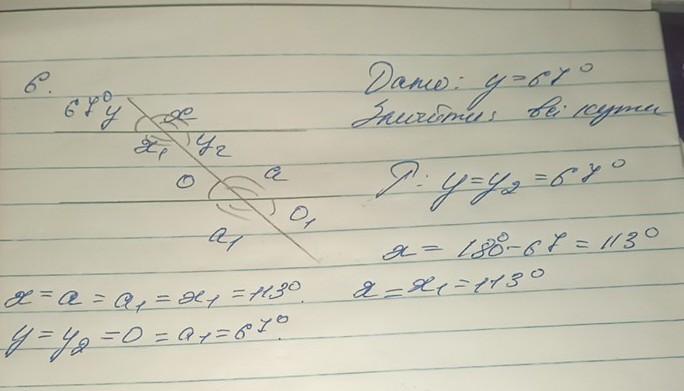 6.
67° y x
x₁ y₂
o a
a₁ o₁
Дано: y = 67°
Знайти: всі кути
Р: y = y₂ = 67°
x = 180° - 67 = 113°
x = x₁ = 113°
x = a = a₁ = x₁ = 113°.
y = y₂ = 0 = a₁ = 67°.